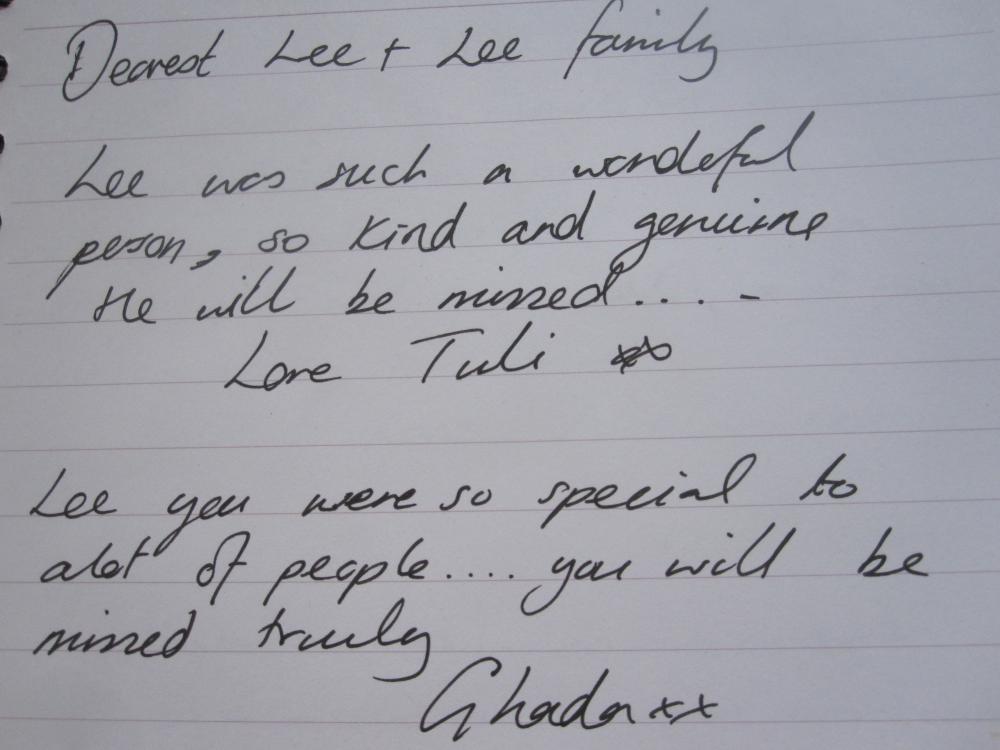 Dearest Lee + Lee family
Lee was such a wondeful
person, so kind and genuine
He will be missed.... -
Love Tuli xx
Lee you were so special to
alot of people.... you will be
missed truly
Ghada xx